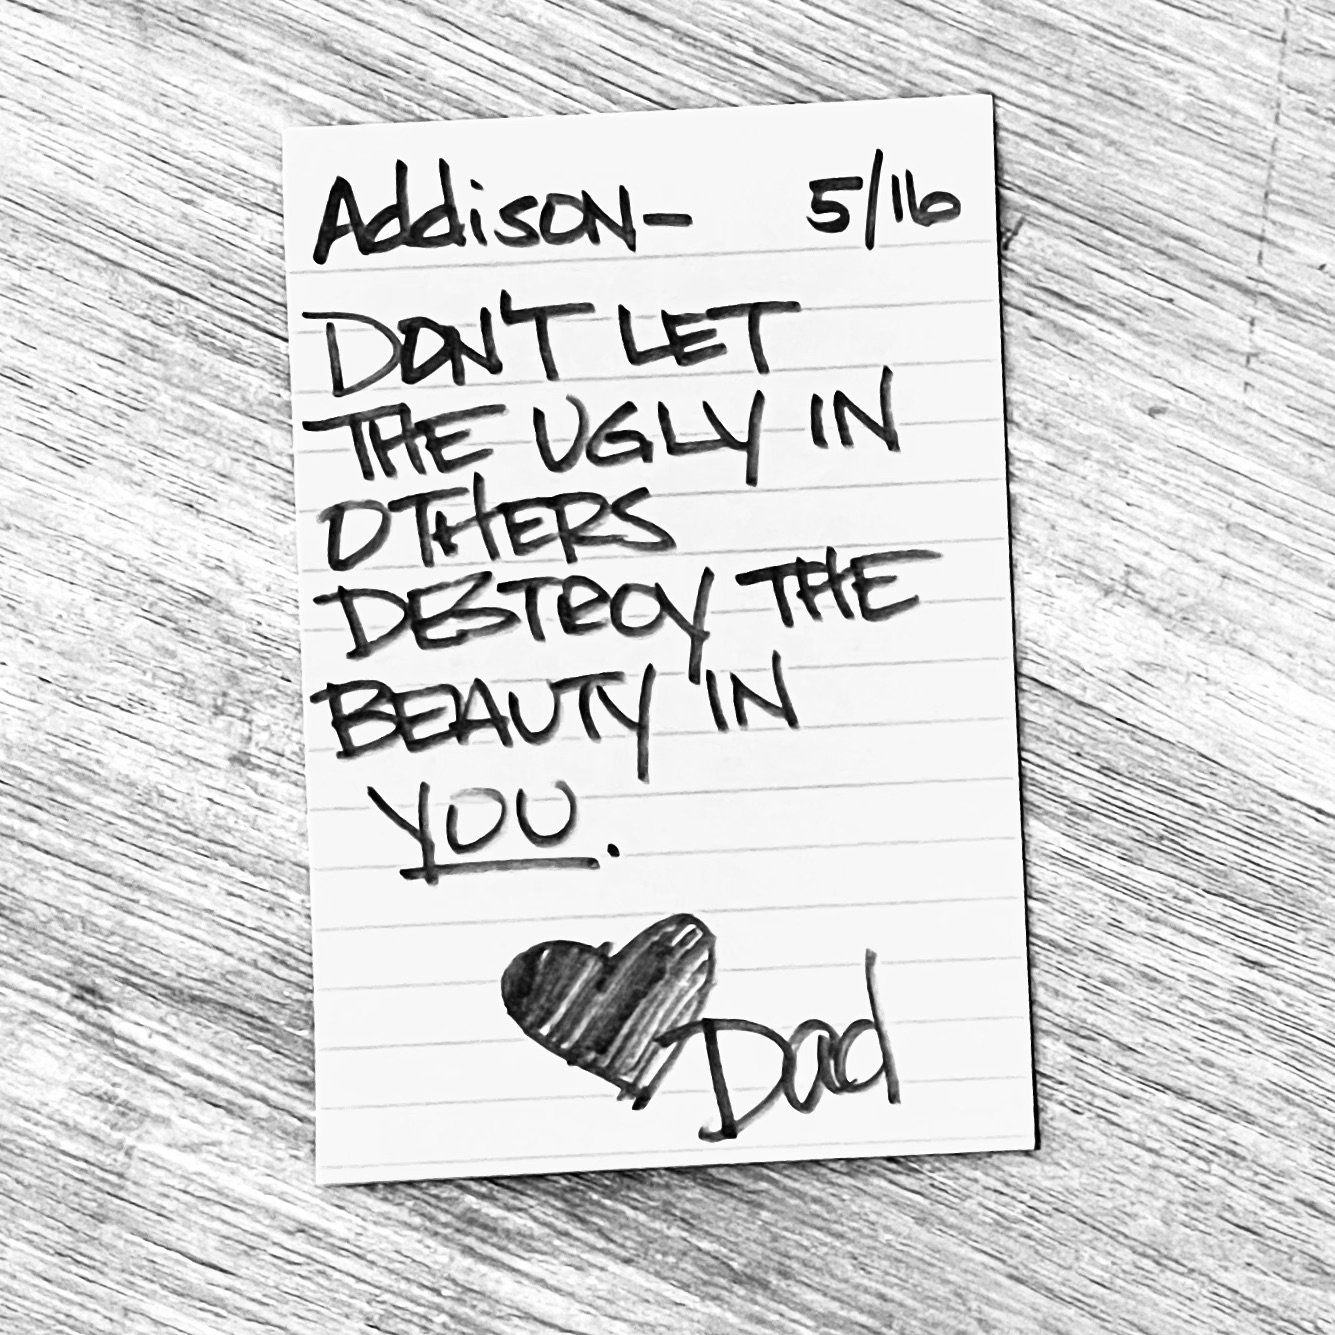 Addison- 5/16
DON'T LET
THE UGLY IN
OTHERS
DESTROY THE
BEAUTY IN
YOU.
Dad